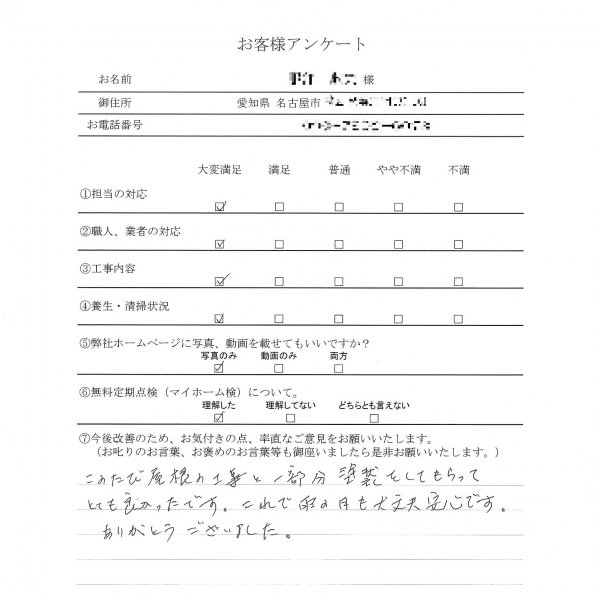 お客様アンケート
お名前 様
御住所 愛知県 名古屋市
お電話番号
大変満足 満足 普通 やや不満 不満
①担当の対応 ☑ ☐ ☐ ☐ ☐
②職人、業者の対応 ☑ ☐ ☐ ☐ ☐
③工事内容 ☑ ☐ ☐ ☐ ☐
④養生・清掃状況 ☑ ☐ ☐ ☐ ☐
⑤弊社ホームページに写真、動画を載せてもいいですか？
写真のみ 動画のみ 両方
☑ ☐ ☐
⑥無料定期点検（マイホーム検）について。
理解した 理解してない どちらとも言えない
☑ ☐ ☐
⑦今後改善のため、お気付きの点、率直なご意見をお願いいたします。
（お叱りのお言葉、お褒めのお言葉等も御座いましたら是非お願いいたします。）
このたび屋根の工事と一部分 塗装をしてもらって
とても良かったです。これで雨の日も大丈夫安心です。
ありがとうございました。